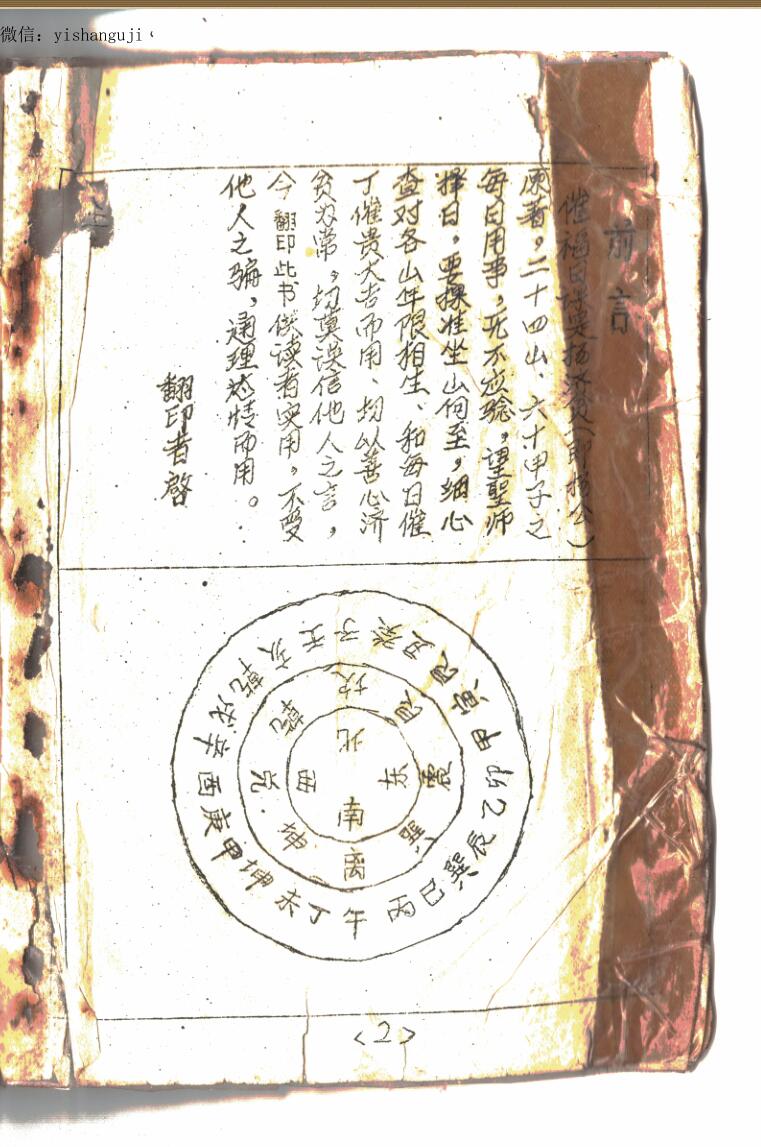 微信：yishanguji
前言
催福日课是杨济贫（即杨公）
原著，二十四山、六十甲子之
每日用事，无不应验。望圣师
择日，要课准坐山何至，细心
查对各山年限相生、和每日催
丁催贵大吉而用、均以善心济
贫为常。切莫误信他人之言，
今翻印此书供读者实用。不受
他人之骗，通理 情而用。
翻印者啓
北
东
南
西
坎
艮
震
巽
离
坤
兑
乾
壬子癸丑艮寅甲卯乙辰巽巳丙午丁未坤甲庚酉辛戌乾亥
<2>